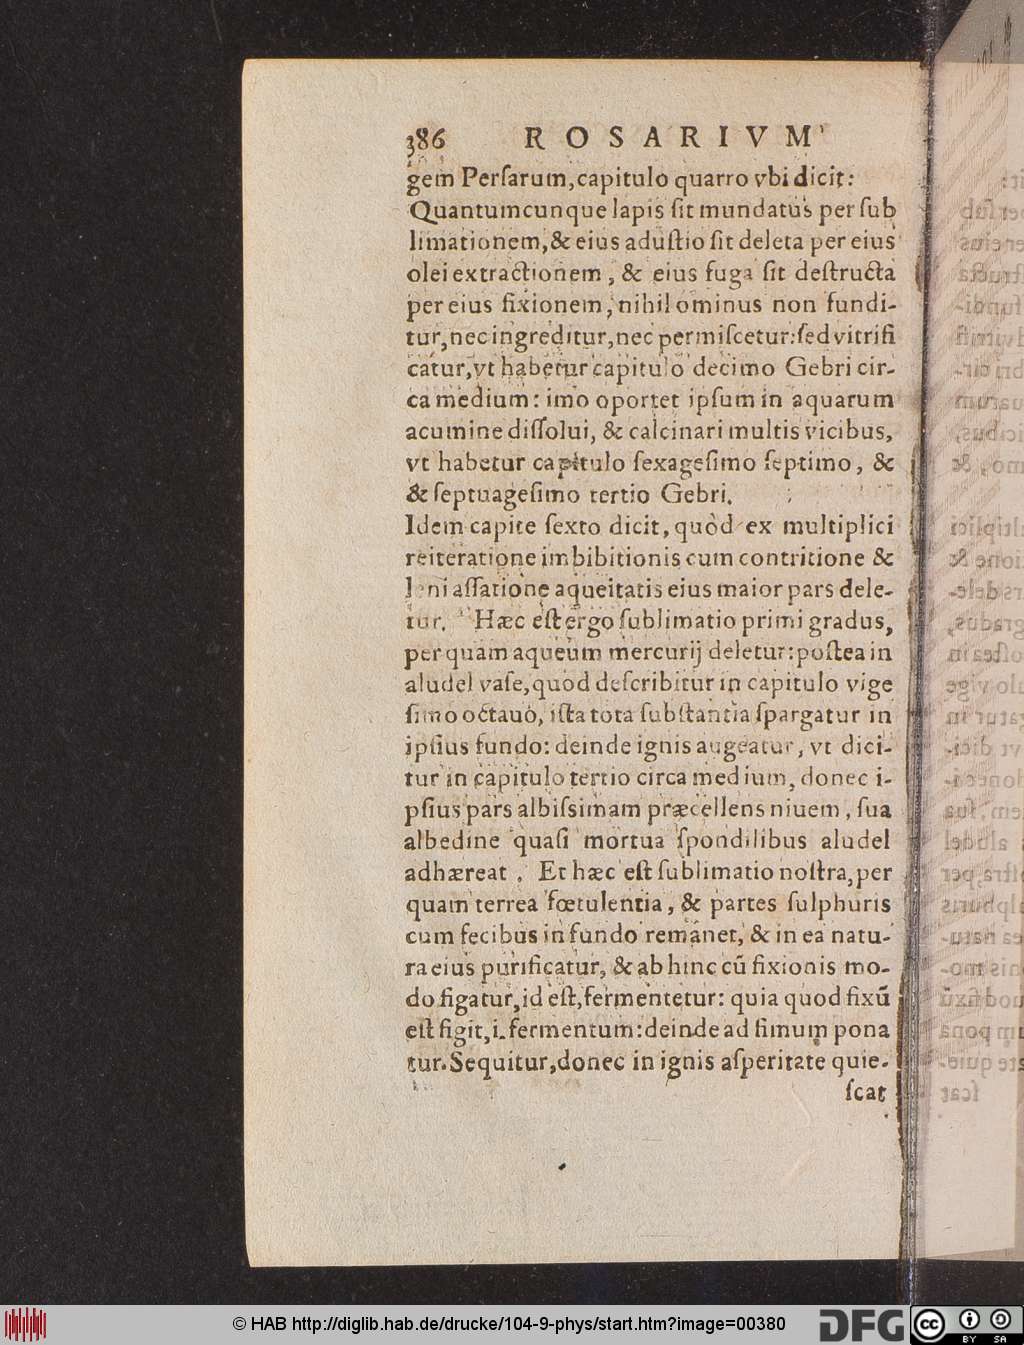 386 ROSARIVM
gem Perſarum, capitulo quarro vbi dicit:
Quantumcunque lapis ſit mundatus per ſub
limationem, & eius aduſtio ſit deleta per eius
olei extractionem, & eius fuga ſit deſtructa
per eius fixionem, nihil ominus non fundi-
tur, nec ingreditur, nec permiſcetur: ſed vitrifi
catur, vt habetur capitulo decimo Gebri cir-
ca medium: imo oportet ipſum in aquarum
acumine diſſolui, & calcinari multis vicibus,
vt habetur capitulo ſexageſimo ſeptimo, &
& ſeptuageſimo tertio Gebri.
Idem capite ſexto dicit, quòd ex multiplici
reiteratione imbibitionis cum contritione &
leni aſſatione aqueitatis eius maior pars dele-
tur. Hæc eſt ergo ſublimatio primi gradus,
per quam aqueum mercurij deletur: poſtea in
aludel vaſe, quod deſcribitur in capitulo vige
ſimo octauo, iſta tota ſubſtantia ſpargatur in
ipſius fundo: deinde ignis augeatur, vt dici-
tur in capitulo tertio circa medium, donec i-
pſius pars albiſsimam præcellens niuem, ſua
albedine quaſi mortua ſpondilibus aludel
adhæreat. Et hæc eſt ſublimatio noſtra, per
quam terrea fœtulentia, & partes ſulphuris
cum fecibus in fundo remanet, & in ea natu-
ra eius purificatur, & ab hinc cū fixionis mo-
do figatur, id eſt, fermentetur: quia quod fixū
eſt figit, i. fermentum: deinde ad fimum pona
tur. Sequitur, donec in ignis aſperitate quie-
ſcat
© HAB http://diglib.hab.de/drucke/104-9-phys/start.htm?image=00380
DFG
cc BY SA